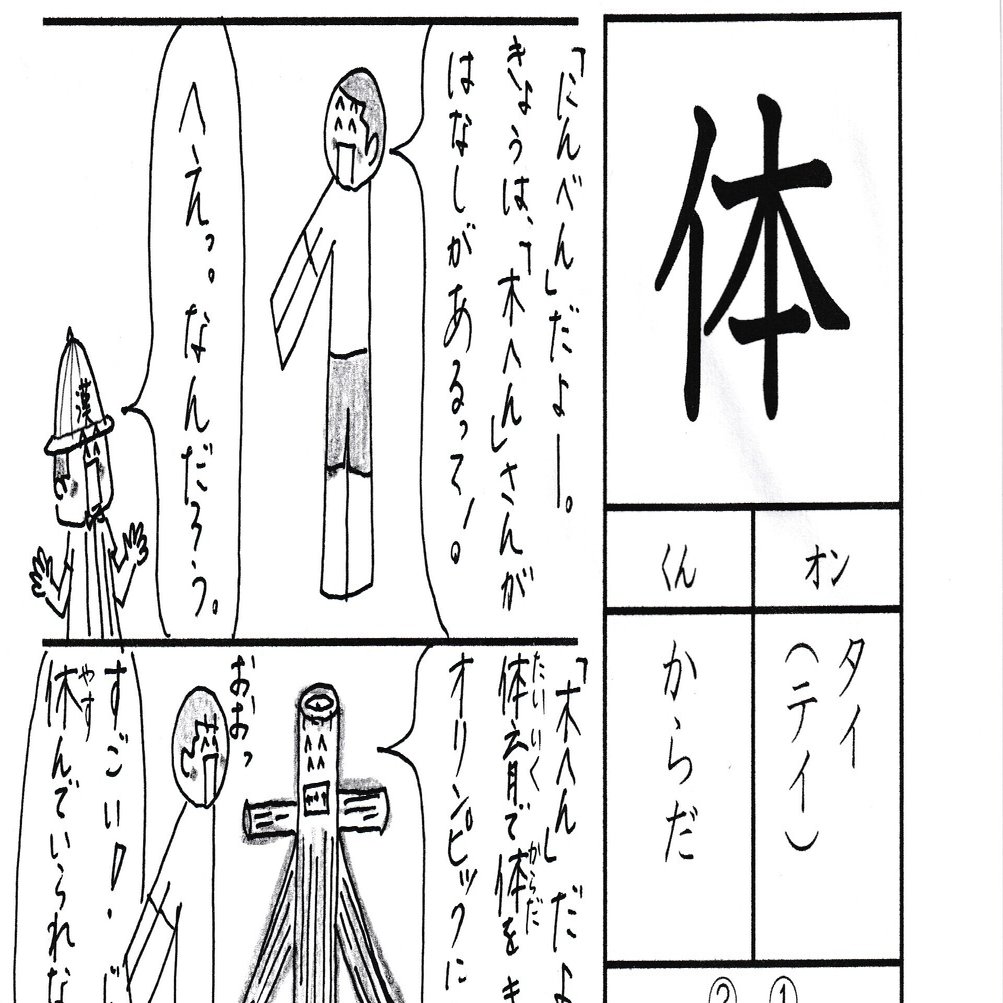 体
オン
タイ
（テイ）
くん
からだ
①
②
「にんべん」だよー。
きょうは、「木へん」さんが
はなしがあるって！。
へえっ。なんだろう。
漢
「木へん」だよ
体育で体をき
たいいく
からだ
オリンピックに
おおっ
すごい！。じ
休んでいられな
やす